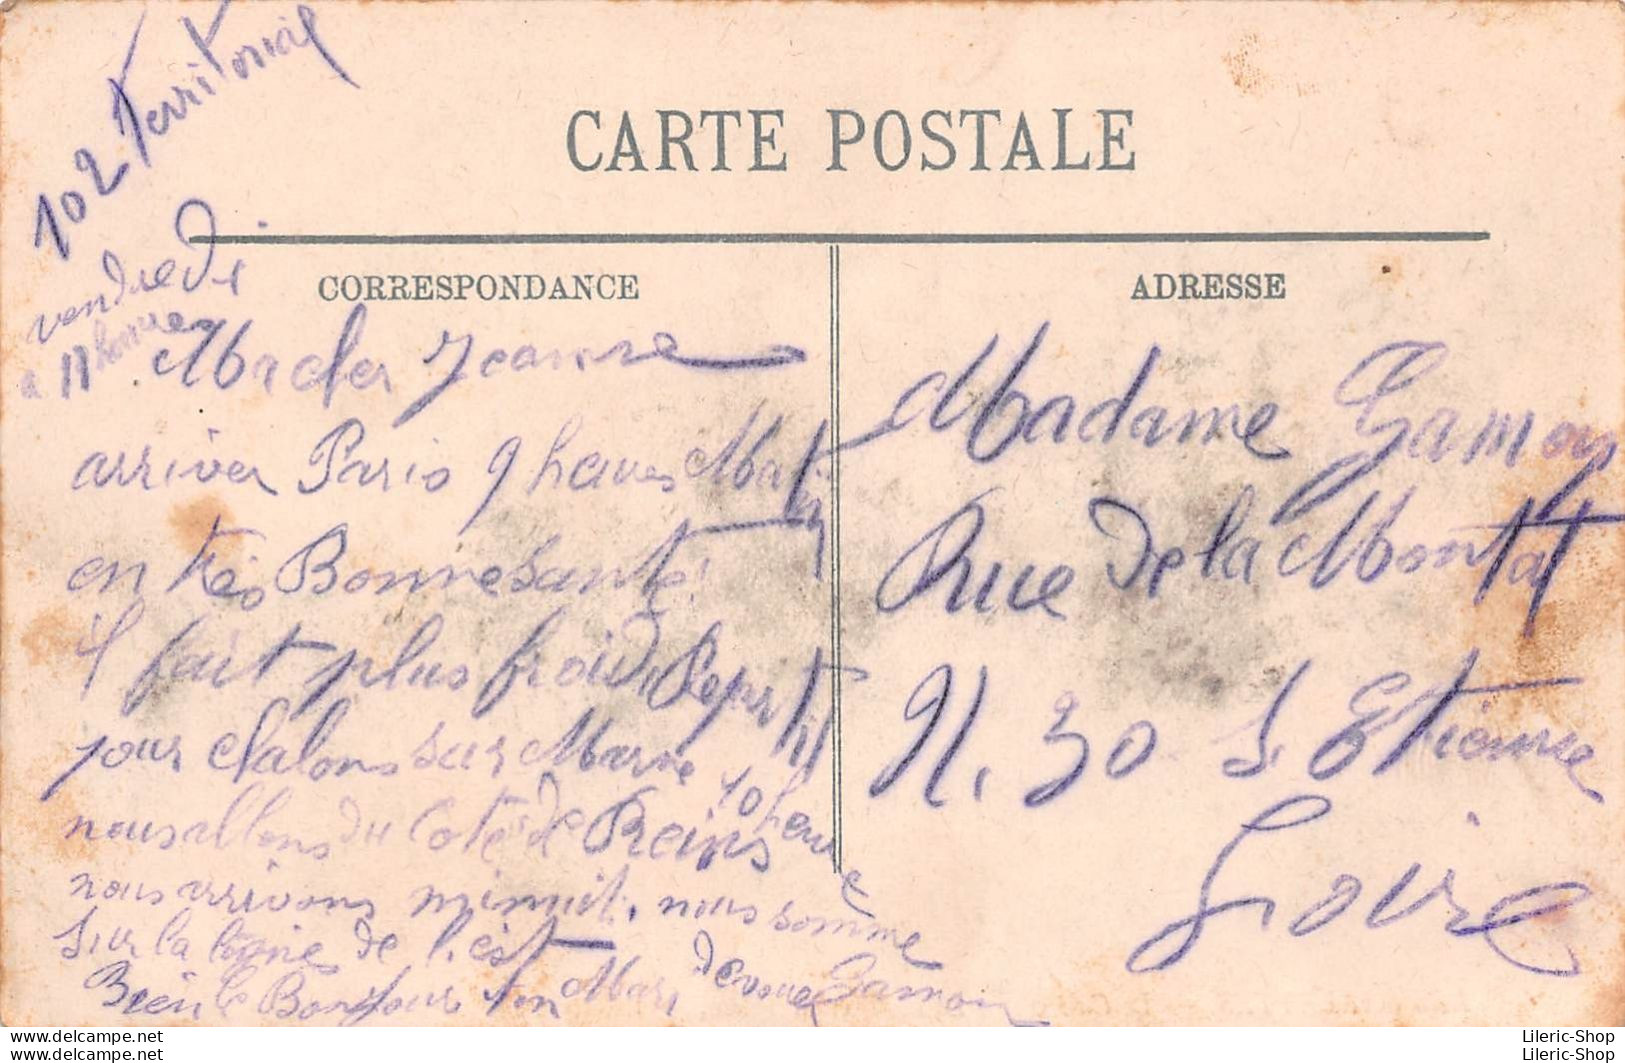 102 Territorial
CARTE POSTALE
vendredi
a 11 heures
CORRESPONDANCE
Ma cher Jeanne
arriver Paris 9 heures Matin
en très Bonne santé
il fait plus froid, Repartir
pour chalons sur Marne 10 heure
nous allons du coté de Reims
nous arrivons minuit, nous somme
sur la ligne de l'est
Bien le Bonjour ton Mari devoué Gamon
ADRESSE
Madame Gamon
Rue de la Montat
N. 30 S. Etienne
Loire
Lileric-Shop
Lileric-Shop
Lileric-Shop
Lileric-Shop